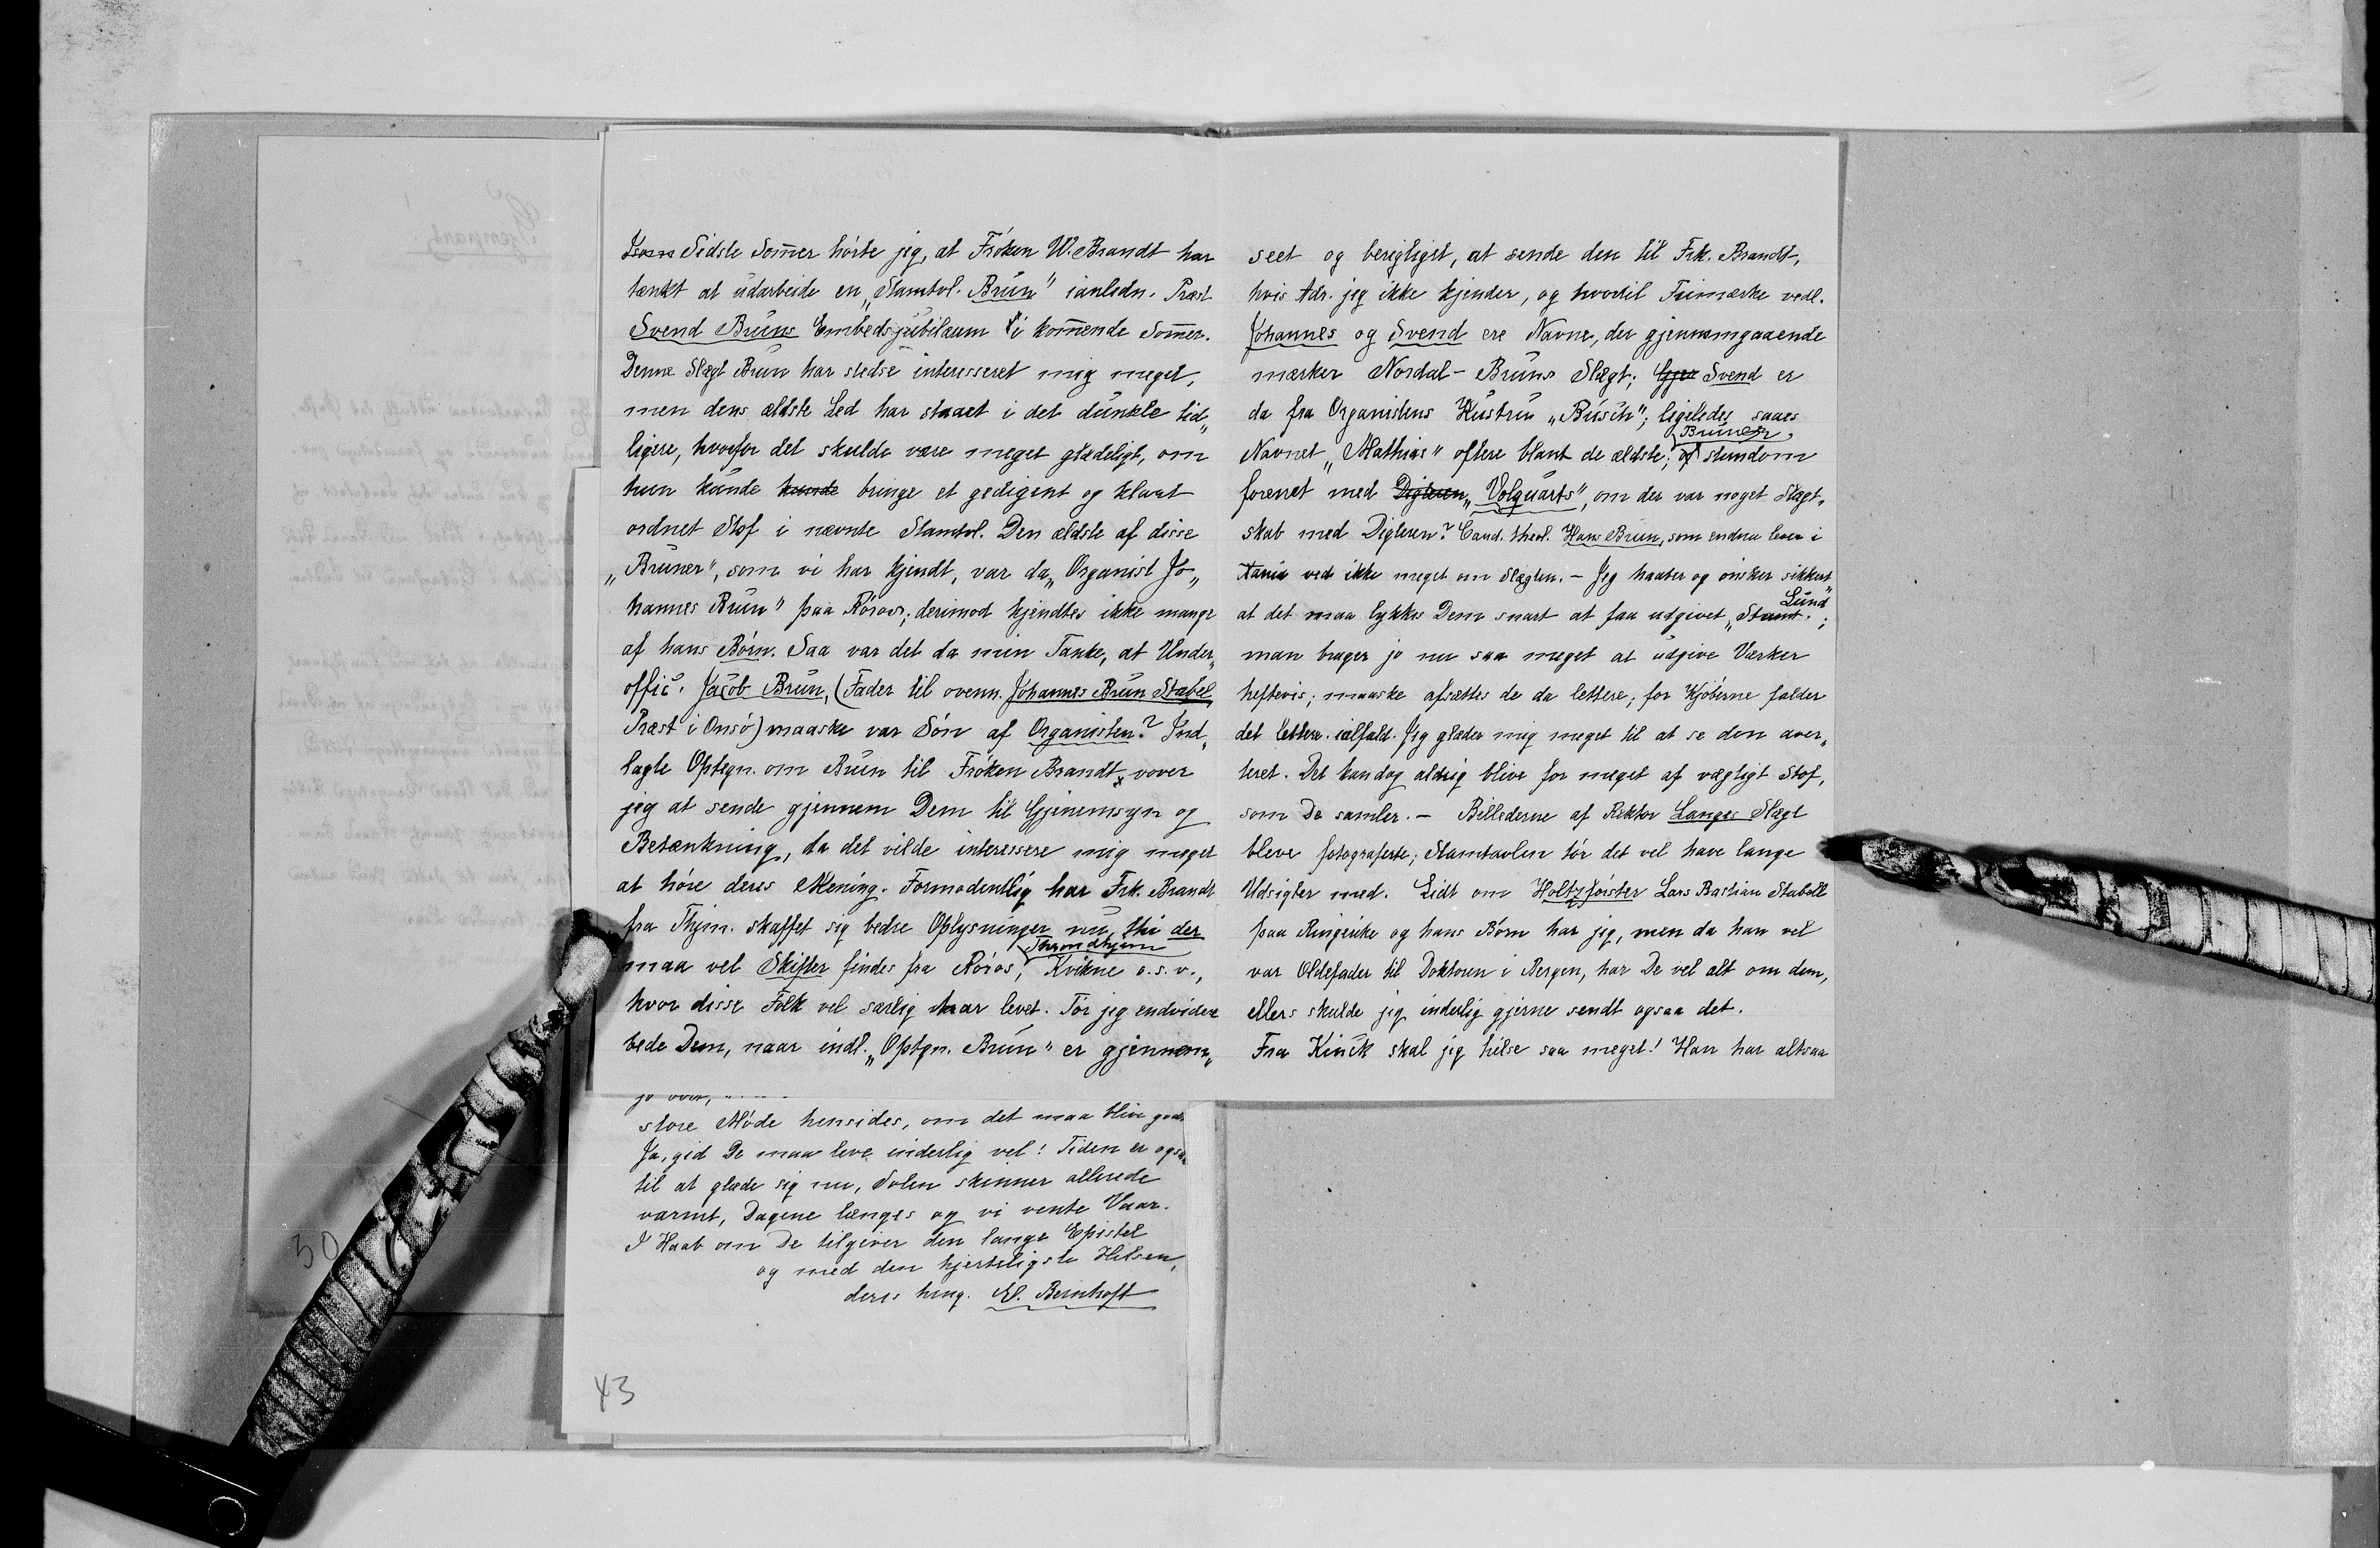 Sidste Som̄er hörte jeg, at Fröken W. Brandt har
tænkt at udarbeide en „Stamtvl. Brun" ianledn. Præst
Svend Bruns Embedsjubilæum i kom̄ende Som̄er.
Denne Slægt Brun har stedse interesseret mig meget,
men dens ældste Led har staaet i det dunkle tid„
ligere, hvorfor det skulde være meget glædeligt, om
hun kunde kunde bringe et gedigent og klart
ordnet Stof i nævnte Stamtvl. Den ældste af disse
„Bruner", som vi har kjendt, var da „Organist Jo„
hannes Brun" paa Röros; derimod kjendtes ikke mange
af hans Börn. Saa var det da min Tanke, at Under„
offic. Jacob Brun, (Fader til ovenn. Johannes Brun Stabel,
Præst i Onsö) maaske var Sön af Organisten? Ind„
lagte Optegn. om Brun til Fröken Brandt, vover
jeg at sende gjennem Dem til Gjenemsyn og
Betænkning, da det vilde interessere mig meget
at höre deres Mening. Formodentlig har Frk. Brandt
fra Thjm. skaffet sig bedre Oplysninger nu, thi der
Throndhjem
maa vel Skifter findes fra Röros, Kvikne o.s.v.,
hvor disse Folk vel særlig har levet. Tör jeg endvidere
bede Dem, naar indl. „Optgn. Brun" er gjennem„
store Möde hensides, om det maa blive
Ja, gid De maa leve inderlig vel! Tiden er ogsaa
til at glæde sig nu, Solen skinner allerede
varmt, Dagene længes og vi vente Vaar.
I Haab om De tilgiver den lange Epistel
og med den hjerteligste Hilsen,
deres heng. El. Bernhoft
43
30
seet og berigtiget, at sende den til Frk. Brandt,
hvis Adr. jeg ikke kjender, og hvortil Frimærke vedl.
Johannes og Svend ere Navne, der gjennemgaaende
mærker Nordal-Bruns Slægt; Svend er
da fra Organistens Hustru „Busch"; ligeledes saaes
Bruner,
Navnet „Mathias" oftere blant de ældste; stundom
forenet med Digteren „Volquarts", om der var noget Slægt„
skab med Digteren? Cand. theol. Hans Brun, som endnu lever i
Xania ved ikke meget om Slægten. — Jeg haaber og önsker sikkert
Lund"
at det maa lykkes Dem snart at faa udgivet „Stamt.;
man bruger jo nu saa meget at udgive Værker
heftevis; maaske afsættes de da lettere; for Kjöberne falder
det lettere ialfald. Jeg glæder mig meget til at se den aver„
teret. Det kan dog aldrig blive for meget af vægtigt Stof,
som De samler. — Billederne af Rektor Langes Slægt
bleve fotograferte; Stamtavlen tör det vel have lange
Udsigter med. Lidt om Holtzförster Lars Bastian Stabell
paa Ringerike og hans Börn har jeg, men da han vel
var Oldefader til Doktoren i Bergen, har De vel alt om dem,
ellers skulde jeg inderlig gjerne sendt ogsaa det.
Fra Kinck skal jeg hilse saa meget! Han har altsaa